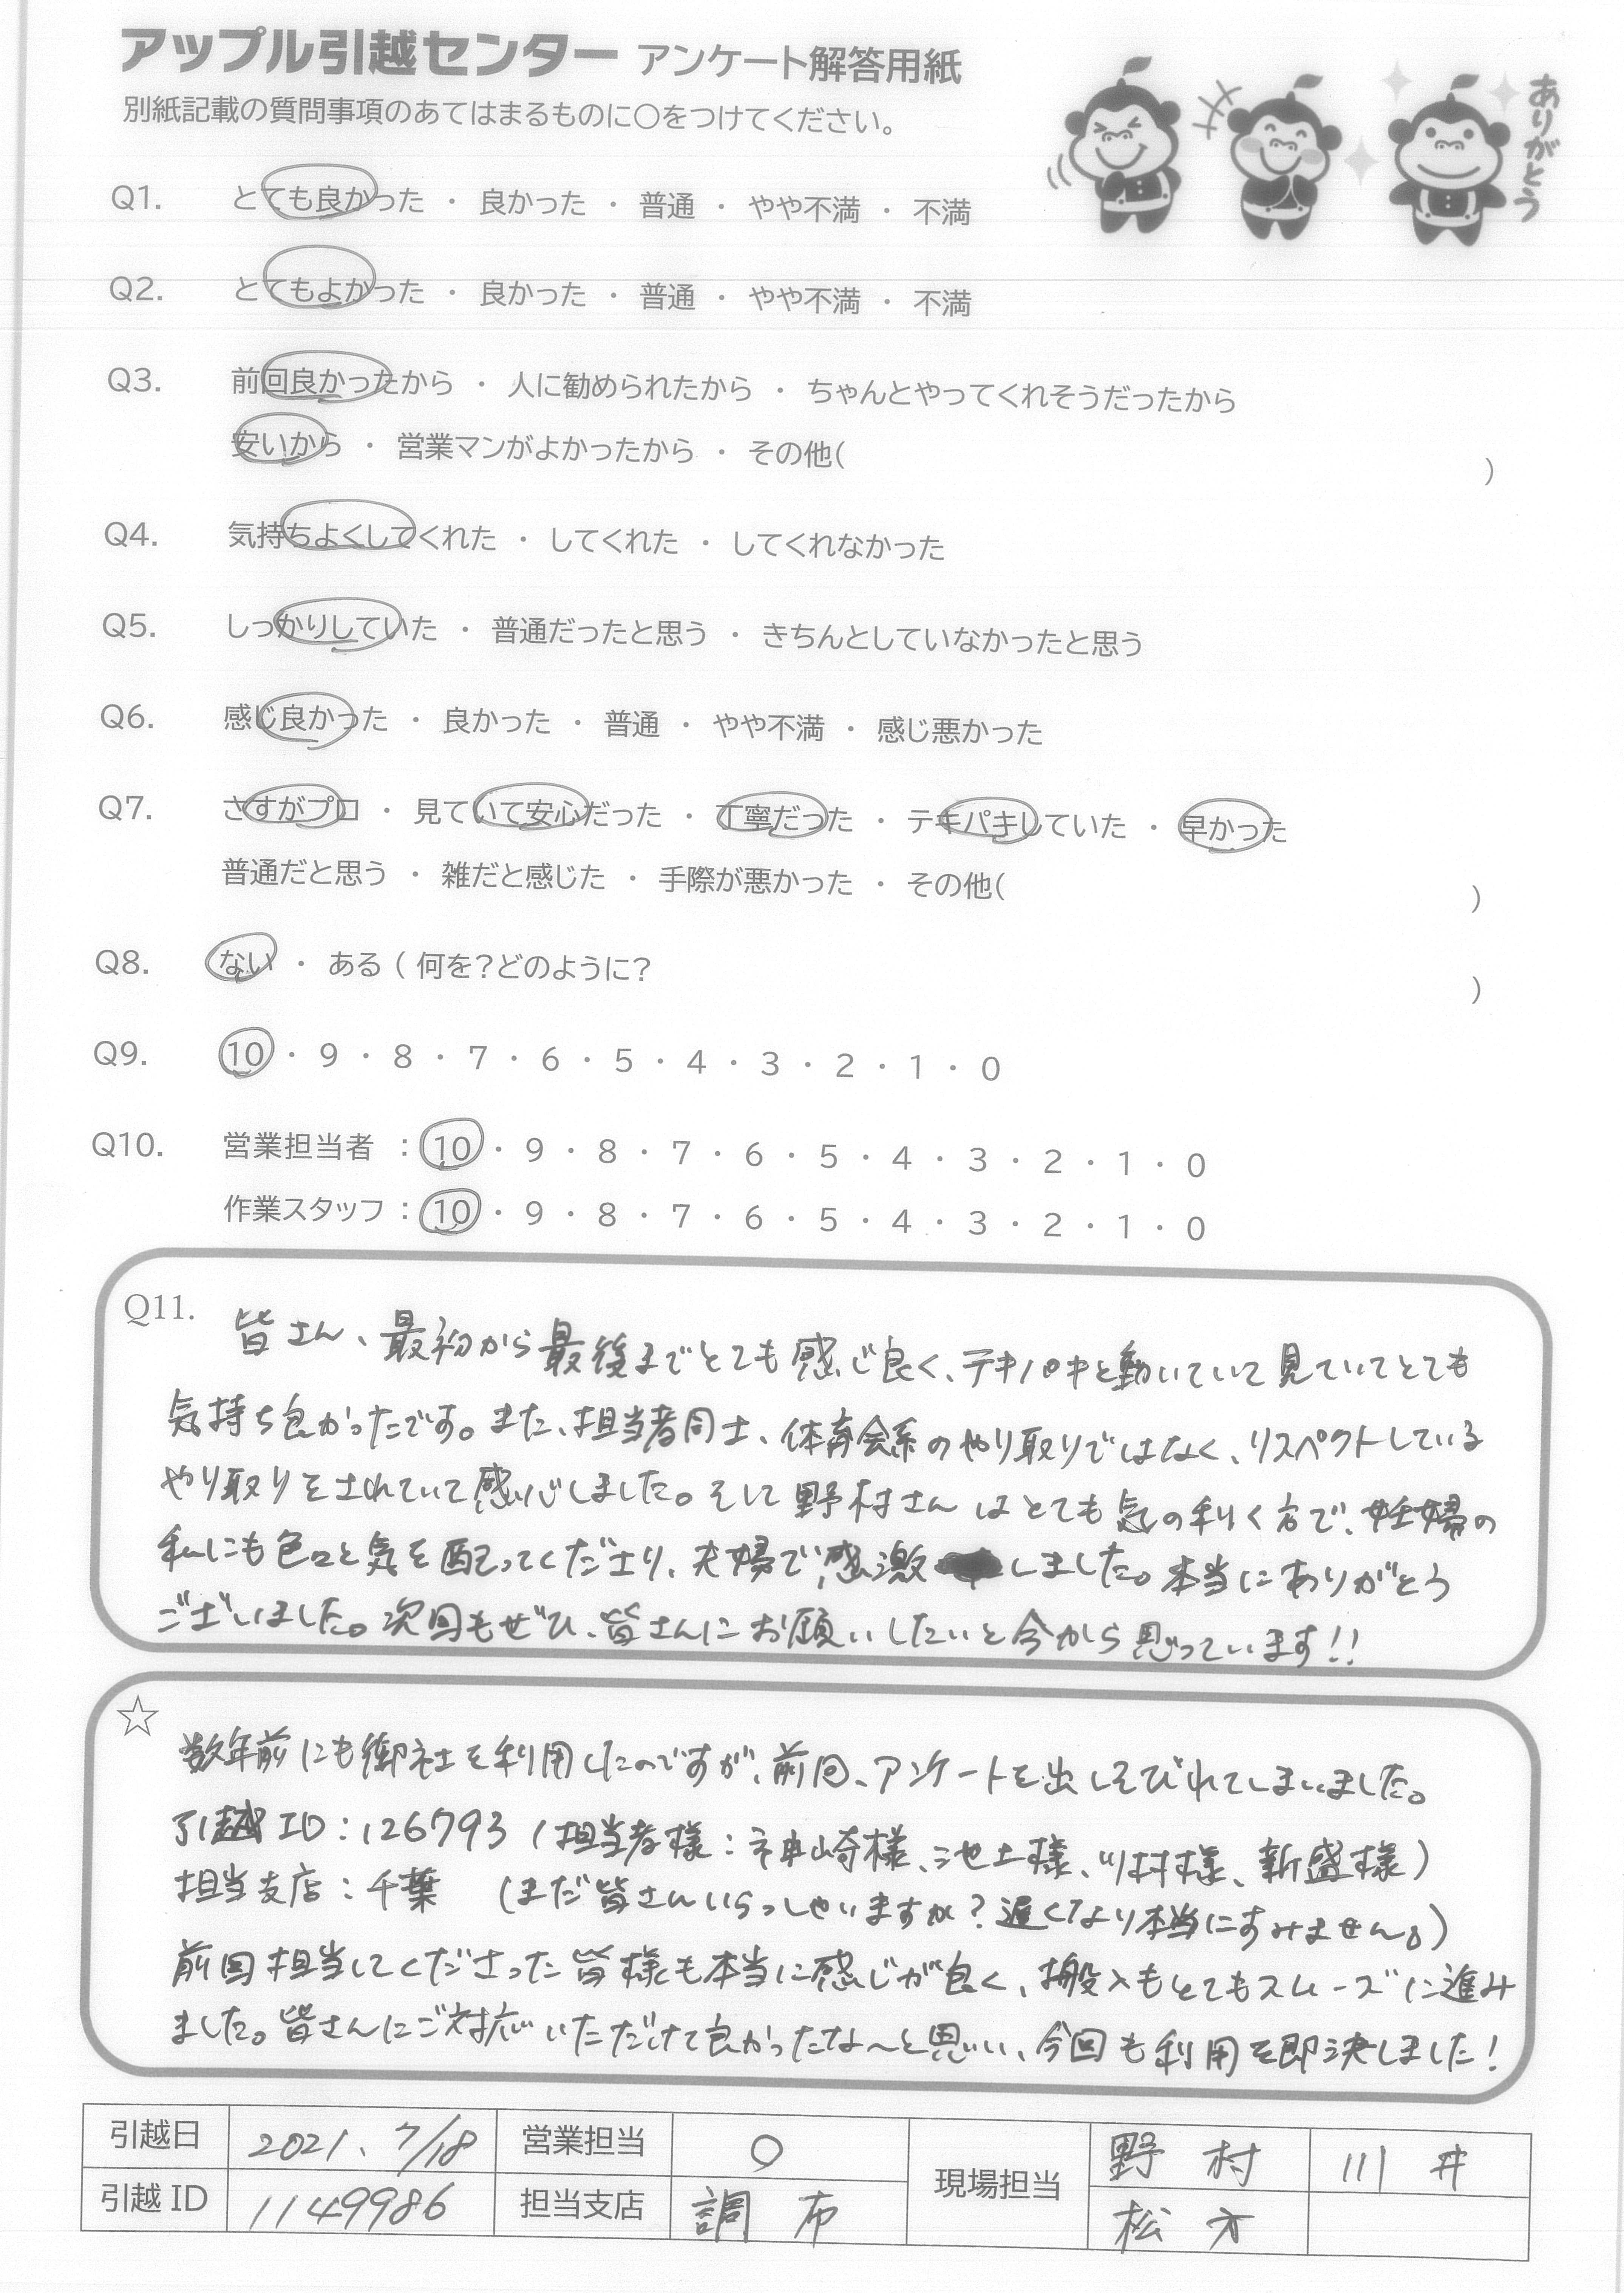 アップル引越センター アンケート解答用紙
別紙記載の質問事項のあてはまるものに〇をつけてください。
ありがとう
Q1. とても良かった ・ 良かった ・ 普通 ・ やや不満 ・ 不満
Q2. とてもよかった ・ 良かった ・ 普通 ・ やや不満 ・ 不満
Q3. 前回良かったから ・ 人に勧められたから ・ ちゃんとやってくれそうだったから
安いから ・ 営業マンがよかったから ・ その他( )
Q4. 気持ちよくしてくれた ・ してくれた ・ してくれなかった
Q5. しっかりしていた ・ 普通だったと思う ・ きちんとしていなかったと思う
Q6. 感じ良かった ・ 良かった ・ 普通 ・ やや不満 ・ 感じ悪かった
Q7. さすがプロ ・ 見ていて安心だった ・ 丁寧だった ・ テキパキしていた ・ 早かった
普通だと思う ・ 雑だと感じた ・ 手際が悪かった ・ その他( )
Q8. ない ・ ある ( 何を?どのように? )
Q9. 10 ・ 9 ・ 8 ・ 7 ・ 6 ・ 5 ・ 4 ・ 3 ・ 2 ・ 1 ・ 0
Q10. 営業担当者 : 10 ・ 9 ・ 8 ・ 7 ・ 6 ・ 5 ・ 4 ・ 3 ・ 2 ・ 1 ・ 0
作業スタッフ : 10 ・ 9 ・ 8 ・ 7 ・ 6 ・ 5 ・ 4 ・ 3 ・ 2 ・ 1 ・ 0
Q11. 皆さん、最初から最後までとても感じ良く、テキパキと動いていて見ていてとても
気持ち良かったです。また、担当者同士、体育会系のやり取りではなく、リスペクトしている
やり取りをされていて感心しました。そして野村さんはとても気の利く方で、妊婦の
私にも色々と気を配ってくださり、夫婦で感激しました。本当にありがとう
ございました。次回もぜひ、皆さんにお願いしたいと今から思っています!!
☆ 数年前にも御社を利用したのですが、前回、アンケートを出しそびれてしまいました。
引越ID:126793 (担当者様:神崎様、池土様、川村様、新盛様)
担当支店:千葉 (まだ皆さんいらっしゃいますか?遅くなり本当にすみません。)
前回担当してくださった皆様も本当に感じが良く、搬入もとてもスムーズに進み
ました。皆さんにご対応いただけて良かったな〜と思い、今回も利用を即決しました!
引越日 2021. 7/18 営業担当 〇 現場担当 野村 川井
引越ID 1149986 担当支店 調布 松方